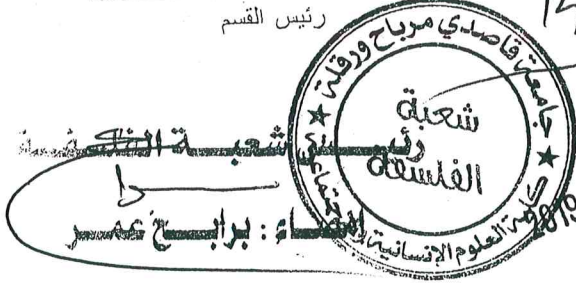 رئيس القسم
جامعة قاصدي مرباح ورقلة
شعبة
الفلسفة
كلية العلوم الإنسانية
رئيس شعبة الفلسفة
الإمضاء : برابح عمر